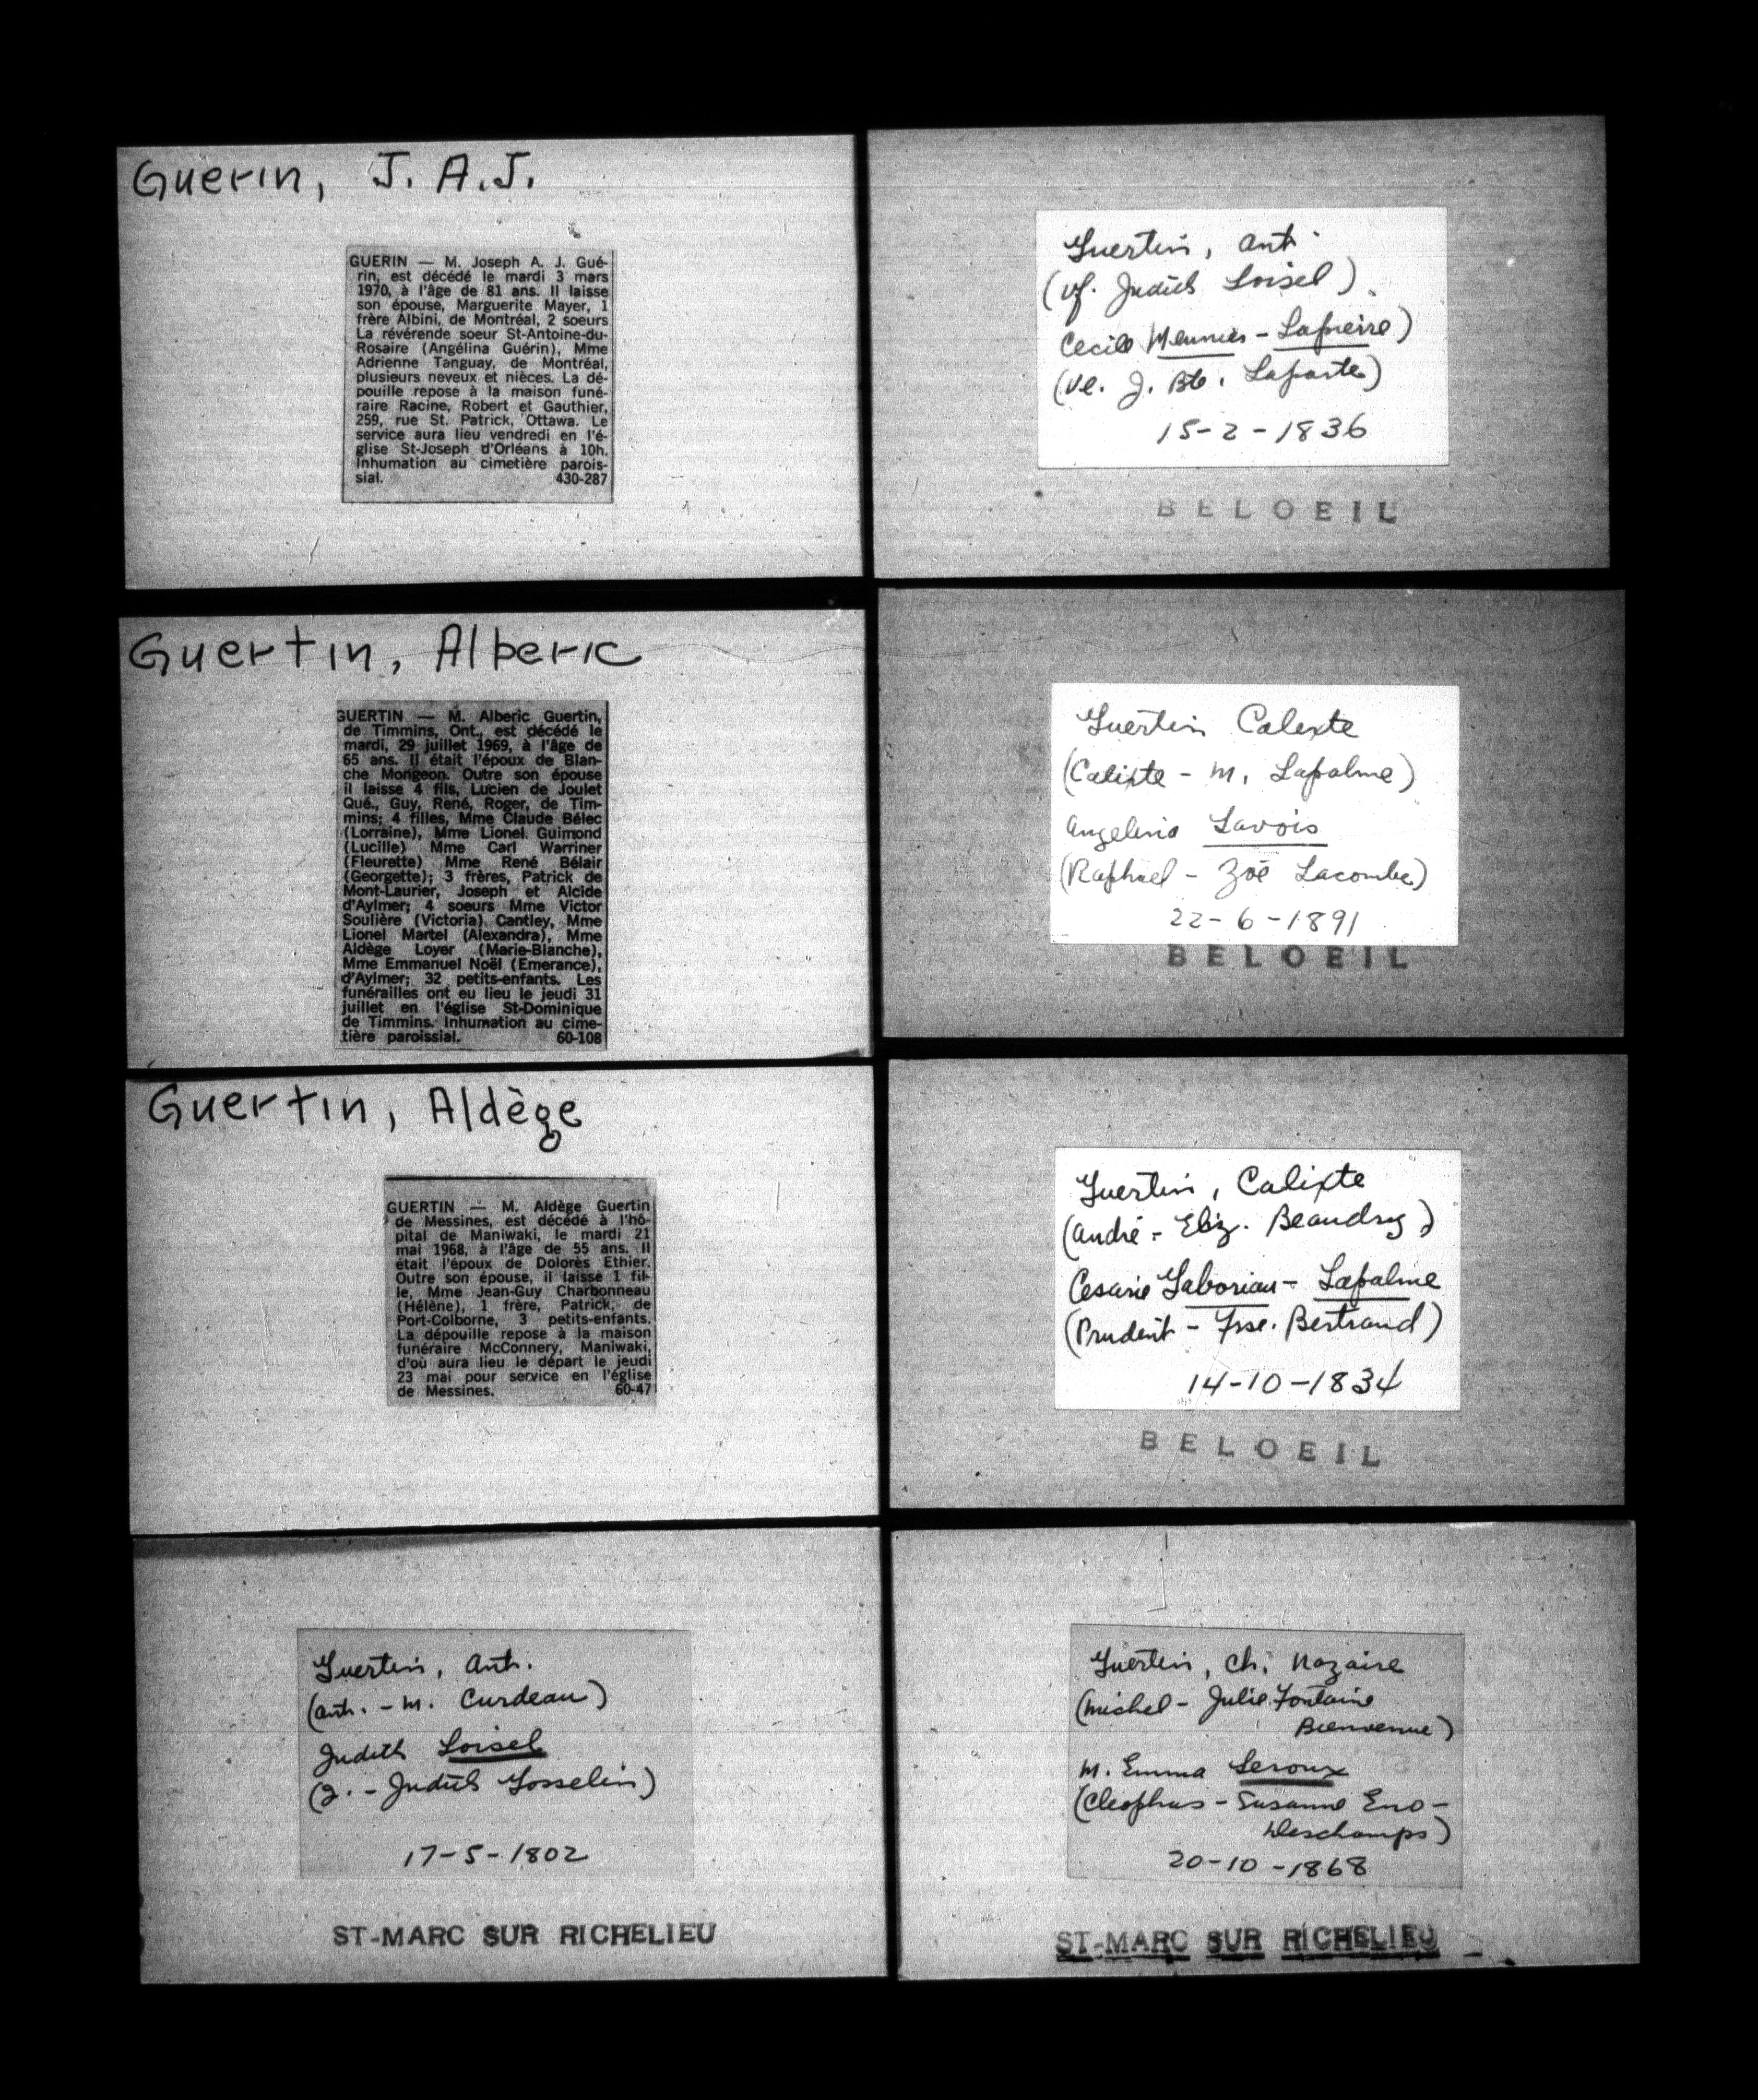 Guerin, J. A.J.
GUERIN — M. Joseph A. J. Gué-
rin, est décédé le mardi 3 mars
1970, à l'âge de 81 ans. Il laisse
son épouse, Marguerite Mayer, 1
frère Albini, de Montréal, 2 soeurs
La révérende soeur St-Antoine-du-
Rosaire (Angélina Guérin), Mme
Adrienne Tanguay, de Montréal,
plusieurs neveux et nièces. La dé-
pouille repose à la maison funé-
raire Racine, Robert et Gauthier,
259, rue St. Patrick, Ottawa. Le
service aura lieu vendredi en l'é-
glise St-Joseph d'Orléans à 10h.
Inhumation au cimetière parois-
sial. 430-287
Guertin, Alberic
GUERTIN — M. Alberic Guertin,
de Timmins, Ont., est décédé le
mardi, 29 juillet 1969, à l'âge de
65 ans. Il était l'époux de Blan-
che Mongeon. Outre son épouse
il laisse 4 fils, Lucien de Joulet
Qué., Guy, René, Roger, de Tim-
mins; 4 filles, Mme Claude Bélec
(Lorraine), Mme Lionel Guimond
(Lucille) Mme Carl Warriner
(Fleurette) Mme René Bélair
(Georgette); 3 frères, Patrick de
Mont-Laurier, Joseph et Alcide
d'Aylmer; 4 soeurs Mme Victor
Soulière (Victoria) Cantley, Mme
Lionel Martel (Alexandra), Mme
Aldège Loyer (Marie-Blanche),
Mme Emmanuel Noël (Emerance),
d'Aylmer; 32 petits-enfants. Les
funérailles ont eu lieu le jeudi 31
juillet en l'église St-Dominique
de Timmins. Inhumation au cime-
tière paroissial. 60-108
Guertin, Aldège
GUERTIN — M. Aldège Guertin
de Messines, est décédé à l'hô-
pital de Maniwaki, le mardi 21
mai 1968, à l'âge de 55 ans. Il
était l'époux de Dolorès Ethier.
Outre son épouse, il laisse 1 fil-
le, Mme Jean-Guy Charbonneau
(Hélène), 1 frère, Patrick, de
Port-Colborne, 3 petits-enfants.
La dépouille repose à la maison
funéraire McConnery, Maniwaki,
d'où aura lieu le départ le jeudi
23 mai pour service en l'église
de Messines. 60-47
Guertin, Ant.
(Ant. - M. Curdeau)
Judith Loisel
(J. - Judith Gosselin)
17-5-1802
ST-MARC SUR RICHELIEU
Guertin, Ant.
(Vf. Judith Loisel)
Cecile Meunier - Lapierre)
(Ve. J. Bte. Laporte)
15-2-1836
BELOEIL
Guertin Calixte
(Calixte - M. Lapalme)
Angelina Lavois
(Raphael - Zoé Lacombe)
22-6-1891
BELOEIL
Guertin, Calixte
(André - Eliz. Beaudry)
Cesarie Gaboriau - Lapalme
(Prudent - Fse. Bertrand)
14-10-1834
BELOEIL
Guertin, Ch. Nazaire
(Michel - Julie Fontaine
Bienvenue)
M. Emma Leroux
(Cleophas - Susanne Eno-
Deschamps)
20-10-1868
ST-MARC SUR RICHELIEU